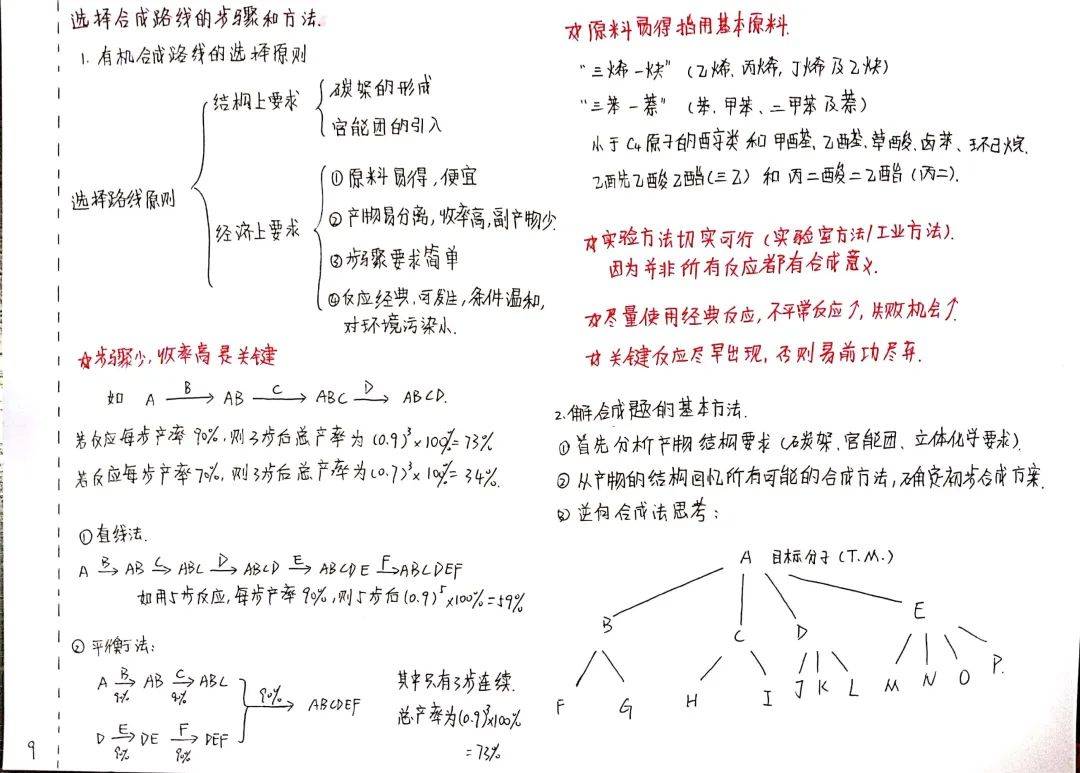 选择合成路线的步骤和方法.
1. 有机合成路线的选择原则
选择路线原则
结构上要求
碳架的形成
官能团的引入
经济上要求
①原料易得,便宜
②产物易分离,收率高,副产物少.
③步骤要求简单
④反应经典,可发生,条件温和,
对环境污染小.
☆步骤少,收率高是关键
如 A B→ AB C→ ABC D→ ABCD.
若反应每步产率90%,则3步后总产率为(0.9)³×100%=73%
若反应每步产率70%,则3步后总产率为(0.7)³×100%=34%.
①直线法.
A B→ AB C→ ABC D→ ABCD E→ ABCDE F→ ABCDEF
如用5步反应,每步产率90%,则5步后(0.9)⁵×100%=59%
②平衡法:
A B→ AB C→ ABC
90% 90%
D E→ DE F→ DEF
90% 90%
90%→ ABCDEF
其中只有3步连续.
总产率为(0.9)³×100%
=73%
9
☆原料易得指用基本原料.
"三烯一炔"(乙烯、丙烯,丁烯及乙炔)
"三苯一萘"(苯、甲苯、二甲苯及萘)
小于C4原子的醇类和甲醛、乙醛、草酸、卤苯、环己烷.
乙酰乙酸乙酯(三乙)和丙二酸二乙酯(丙二).
☆实验方法切实可行(实验室方法/工业方法).
因为并非所有反应都有合成意义.
☆尽量使用经典反应,不平常反应↑,失败机会↑.
☆关键反应尽早出现,否则易前功尽弃.
2.解合成题的基本方法.
①首先分析产物结构要求(碳架、官能团、立体化学要求)
②从产物的结构回忆所有可能的合成方法,确定初步合成方案.
③逆向合成法思考:
A 目标分子(T.M.)
B C D E
F G H I J K L M N O P.